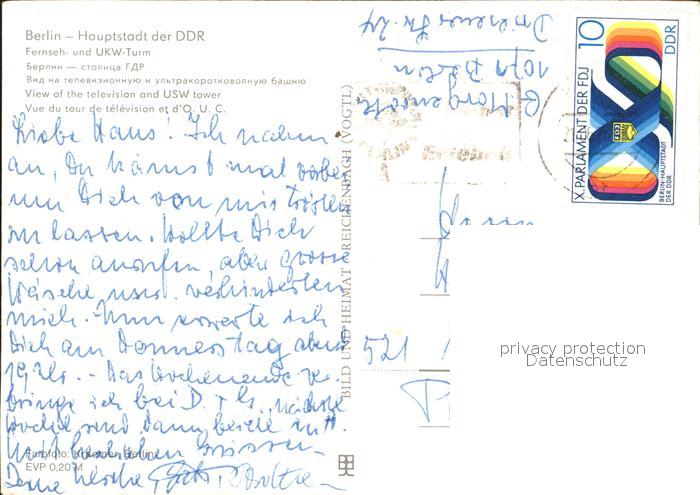 Berlin – Hauptstadt der DDR
Fernseh- und UKW-Turm
Берлин — столица ГДР
Вид на телевизионную и ультракоротковолную башню
View of the television and USW tower
Vue du tour de télévision et d'O. U. C.
Liebe Hans! Ich nahm
an, Du kämst mal vorbei
um Dich von mir trösten
zu lassen. Wollte Dich
schon anrufen, aber grosse
Wäsche usw. verhinderten
mich. Nun erwarte ich
Dich am Donnerstag abend
19 Uhr. - Das Wochenende ver-
bringe ich bei D. + , nächste
Woche sind dann beide
Mit herzlichen Grüssen
Deine
Farbfoto: Kraemer, Berlin
EVP 0,20 M
BILD UND HEIMAT REICHENBACH (VOGTL)
Morgenroth
1071 Berlin
Str. 24
10
DDR
X. PARLAMENT DER FDJ
FDJ
BERLIN-HAUPTSTADT
DER DDR
521
privacy protection
Datenschutz